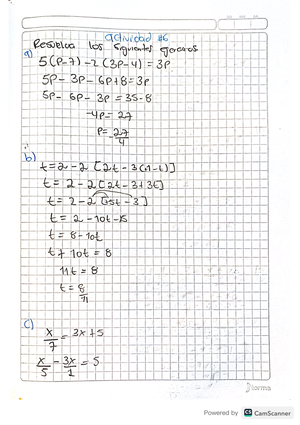 actividad #6
Resuelva los siguientes ejercicios
a)
5(P-7)-2(3P-4)=3P
5P-3P-6P+8=3P
5P-6P-3P=35-8
-4P=27
P=-27/4
b)
t=2-2[2t-3(1-t)]
t=2-2[2t-3+3t]
t=2-2[5t-3]
t=2-10t-15
t=8-10t
t+10t=8
11t=8
t=8/11
c)
x/7=3x+5
x/5-3x/1=5
norma
Powered by CS CamScanner